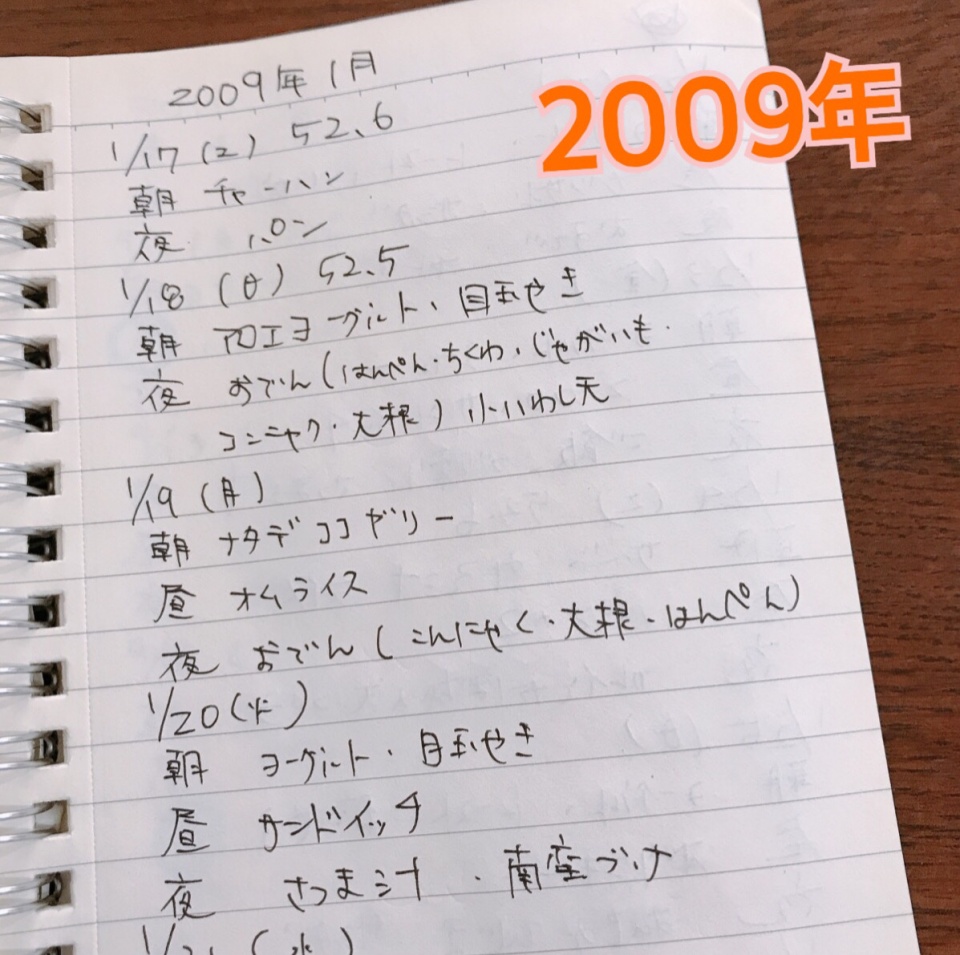 2009年
2009年 1月
1/17 (土) 52.6
朝 チャーハン
夜 パン
1/18 (日) 52.5
朝 アロエヨーグルト・目玉やき
夜 おでん(はんぺん・ちくわ・じゃがいも・
コンニャク・大根) 小いわし天
1/19 (月)
朝 ナタデココゼリー
昼 オムライス
夜 おでん(こんにゃく・大根・はんぺん)
1/20 (火)
朝 ヨーグルト・目玉やき
昼 サンドイッチ
夜 さつま汁・南蛮づけ
1/21 (水)